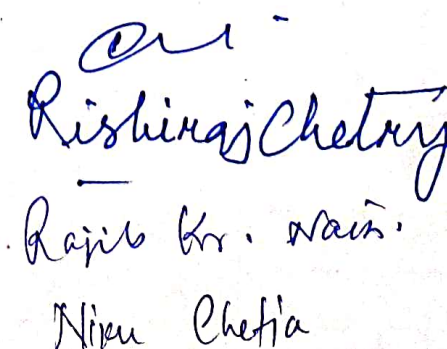 Rishiraj Chetry
Rajib Kr. 
Nipu Chetia